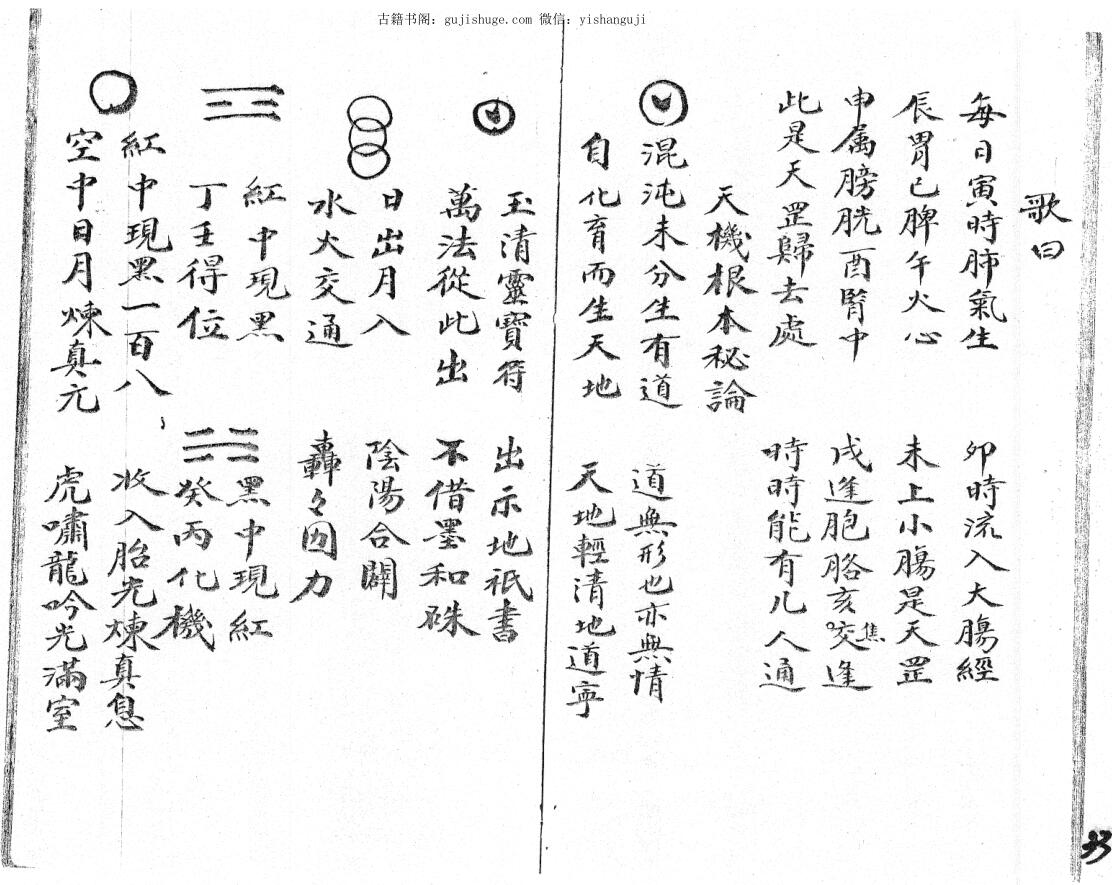 古籍书阁: gujishuge.com 微信: yishanguji
歌曰
每日寅時肺氣生 卯時流入大腸經
辰胃巳脾午火心 未上小腸是天罡
申属膀胱酉腎中 戌逢胞胳亥交焦逢
此是天罡歸去處 時時能有几人通
天機根本秘論
混沌未分生有道 道無形也亦無情
自化育而生天地 天地輕清地道寧
玉清靈寶符 出示地祇書
萬法從此出 不借墨和硃
日出月入 陰陽合闢
水火交通 轟々因力
紅中現黑 黑中現紅
丁壬得位 癸丙化機
紅中現黑一百八 收入胎光煉真息
空中日月煉真元 虎嘯龍吟光滿室